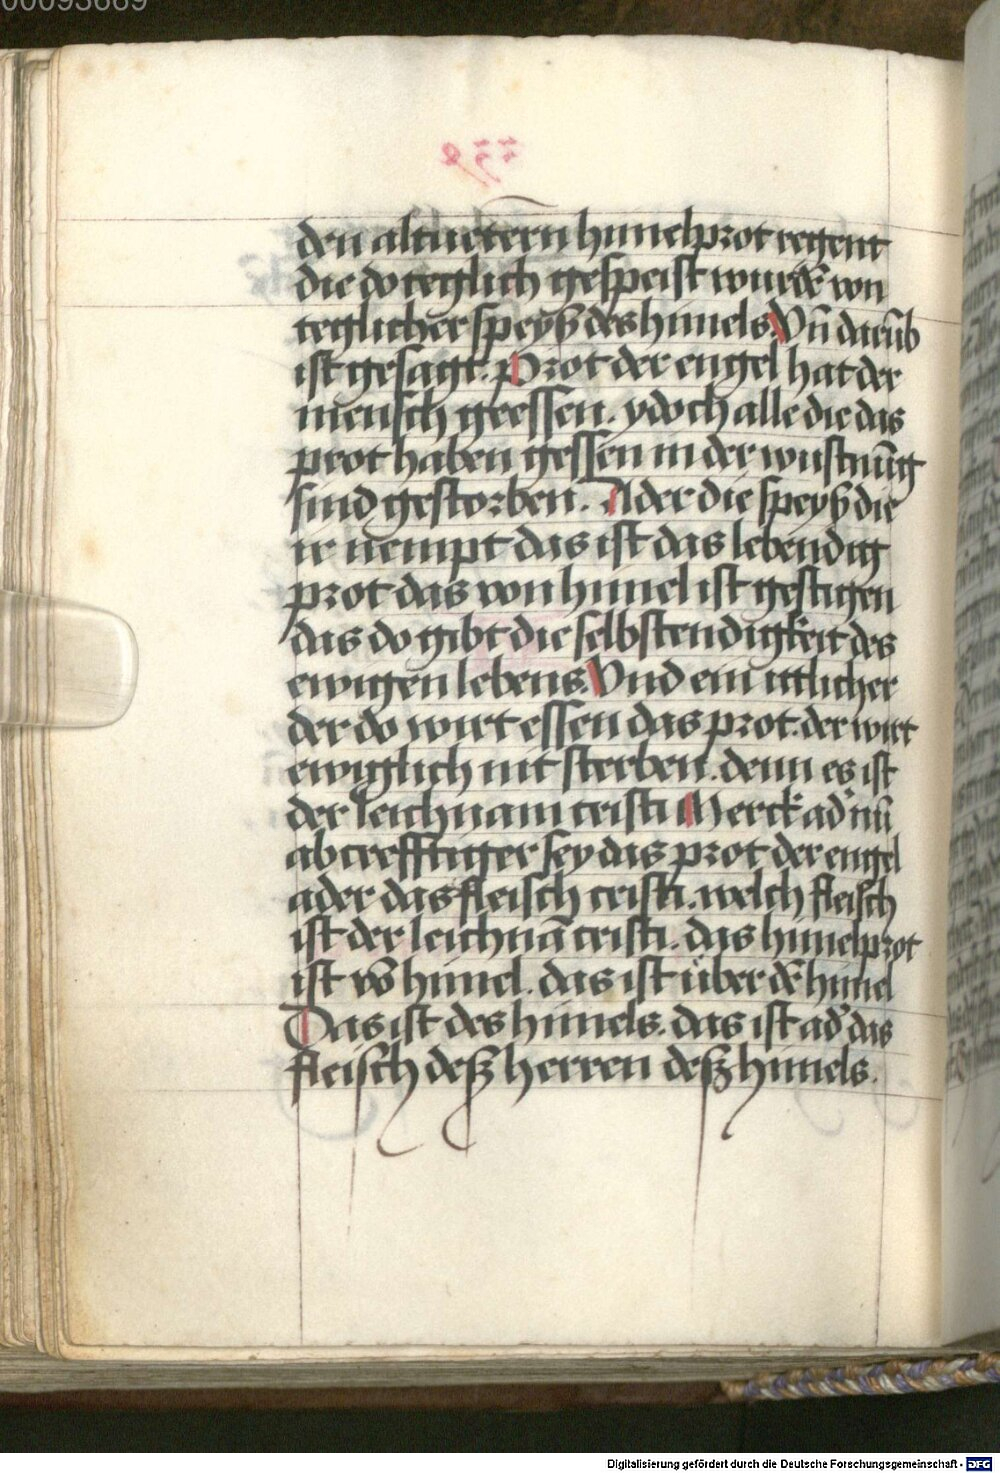 00093669
den altuetern himelprot regent
die do teglich gespeist wurdē von
teglicher speyß des himels. Vn̄ darūb
ist gesagt. Prot der engel hat der
mensch geessen. ydoch alle die das
prot haben gessen in der wustnūg
sind gestorben. Ader die speyß die
ir nempt das ist das lebendig
prot das von himel ist gestigen
das do gibt die selbstendigkeit des
ewigen lebens. Vnd ein itlicher
der do wirt essen das prot. der wirt
ewiglich nit sterben. denn es ist
der leichnam cristi Merck ad' nū
ab crefftiger sey das prot der engel
ader das fleisch cristi. welch fleisch
ist der leichnā cristi. das himelprot
ist vō himel. das ist über dē himel
Das ist des himels. das ist ad' das
fleisch desz herren desz himels.
Digitalisierung gefördert durch die Deutsche Forschungsgemeinschaft - DFG